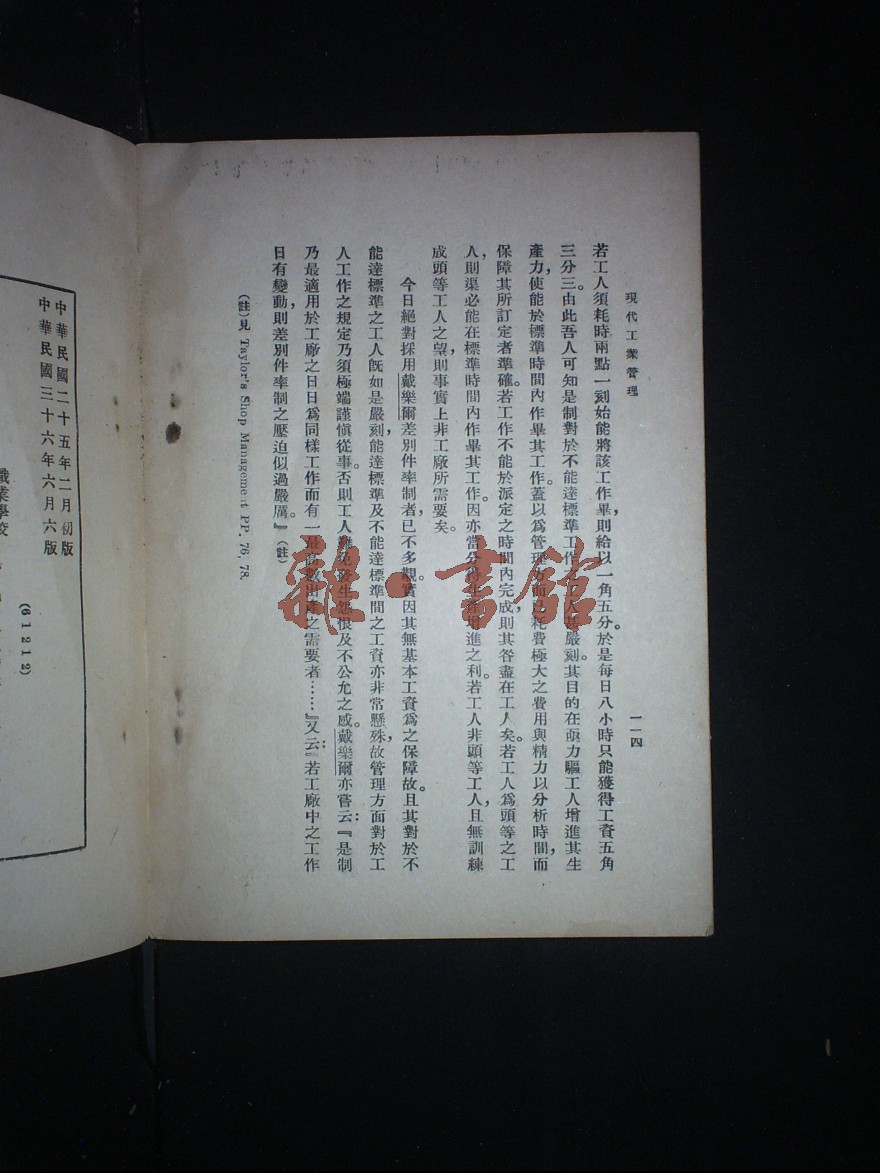 現代工業管理
一一四
若工人須耗時兩點一刻始能將該工作畢，則給以一角五分。於是每日八小時只能獲得工資五角
三分三。由此吾人可知是制對於不能達標準工作之工人甚嚴刻。其目的在亟力驅工人增進其生
產力，使能於標準時間內作畢其工作。蓋以為管理方面已耗費極大之費用與精力以分析時間，而
保障其所訂定者準確。若工作不能於派定之時間內完成，則其咎盡在工人矣。若工人為頭等之工
人，則渠必能在標準時間內作畢其工作。因亦當分得生產增進之利。若工人非頭等工人，且無訓練
成頭等工人之望，則事實上非工廠所需要矣。
今日絕對採用戴樂爾差別件率制者，已不多觀。實因其無基本工資為之保障故。且其對於不
能達標準之工人既如是嚴刻，能達標準及不能達標準間之工資亦非常懸殊，故管理方面對於工
人工作之規定乃須極端謹愼從事。否則工人難免發生怨恨及不公允之感。戴樂爾亦嘗云：『是制
乃最適用於工廠之日日為同樣工作而有一最高數出產之需要者……』又云：『若工廠中之工作
日有變動，則差別件率制之壓迫似過嚴厲。』（註）
（註）見 Taylor's Shop Management PP. 76, 78.
中華民國二十五年二月初版
中華民國三十六年六月六版
(61212)
職業學校
雜·書館